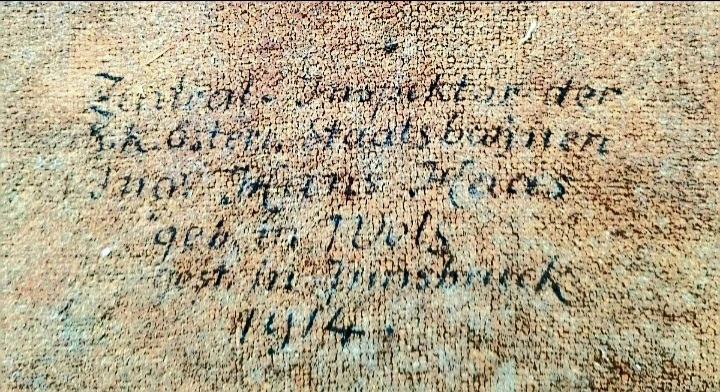 Zentral-Inspektor der
k.k. österr. Staatsbahnen
Hans Haas
geb. in Wels
gest. in Innsbruck
1914.